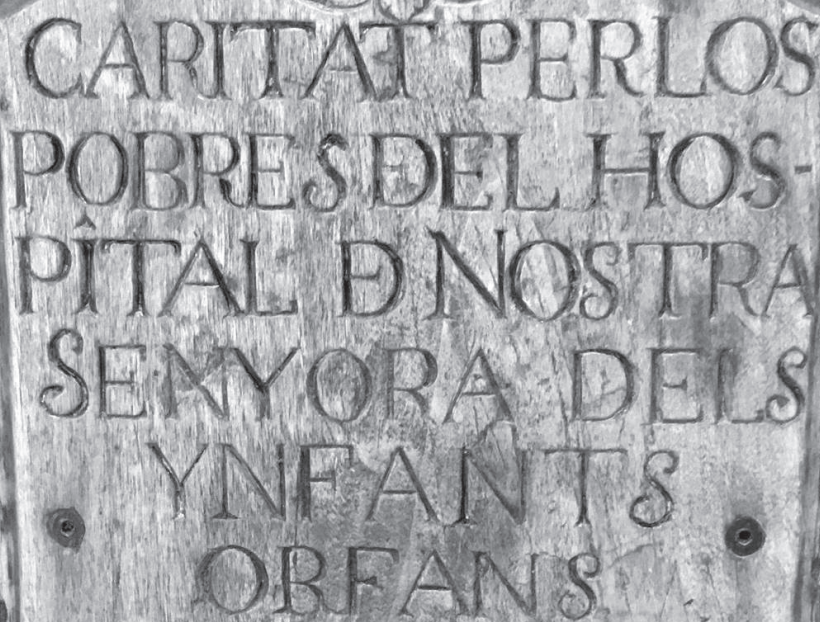 CARITAT PERLOS
POBRES DEL HOS-
PÎTAL Đ NOSTRA
SENYORA DELS
YNFANTS
ORFANS